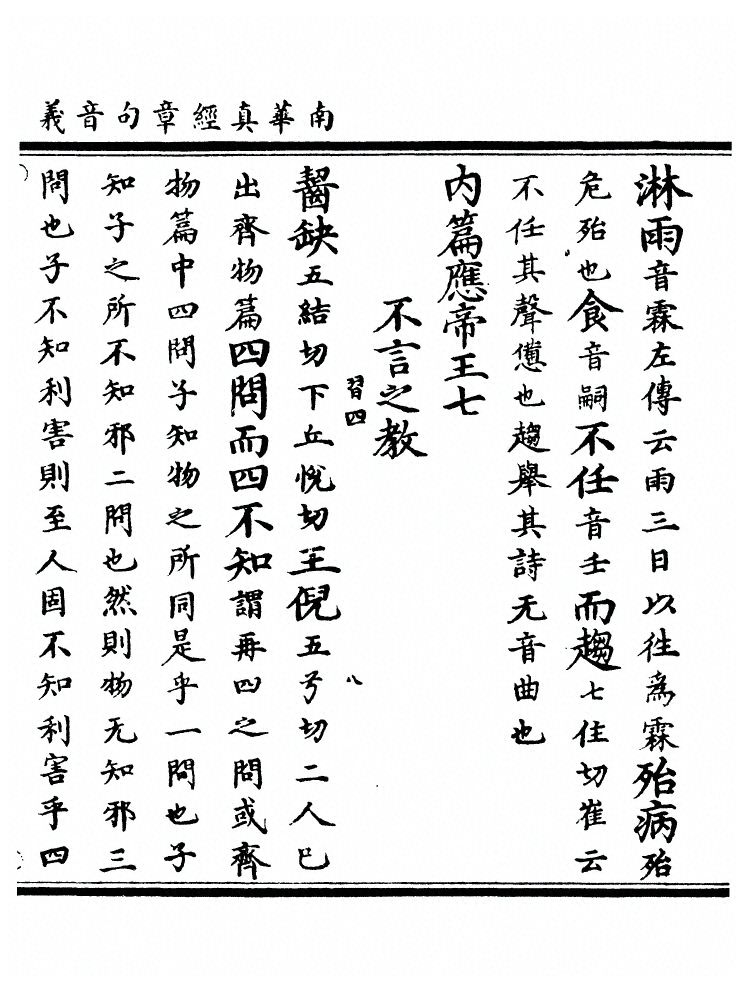 南華真經章句音義
淋雨音霖左傳云雨三日以往為霖殆病殆
危殆也食音嗣不任音壬而趨七住切崔云
不任其聲憊也趨舉其詩无音曲也
内篇應帝王七
不言之教
習四
齧缺五結切下丘悅切王倪五兮切二人巳
八
出齊物篇四問而四不知謂再四之問或齊
物篇中四問子知物之所同是乎一問也子
知子之所不知邪二問也然則物无知邪三
問也子不知利害則至人固不知利害乎四